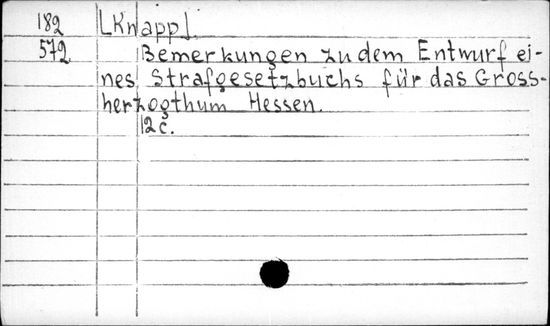 182 [Knapp].
572 Bemerkungen zu dem Entwurf ei-
nes Strafgesetzbuchs für das Gross-
herzogthum Hessen.
12 c.